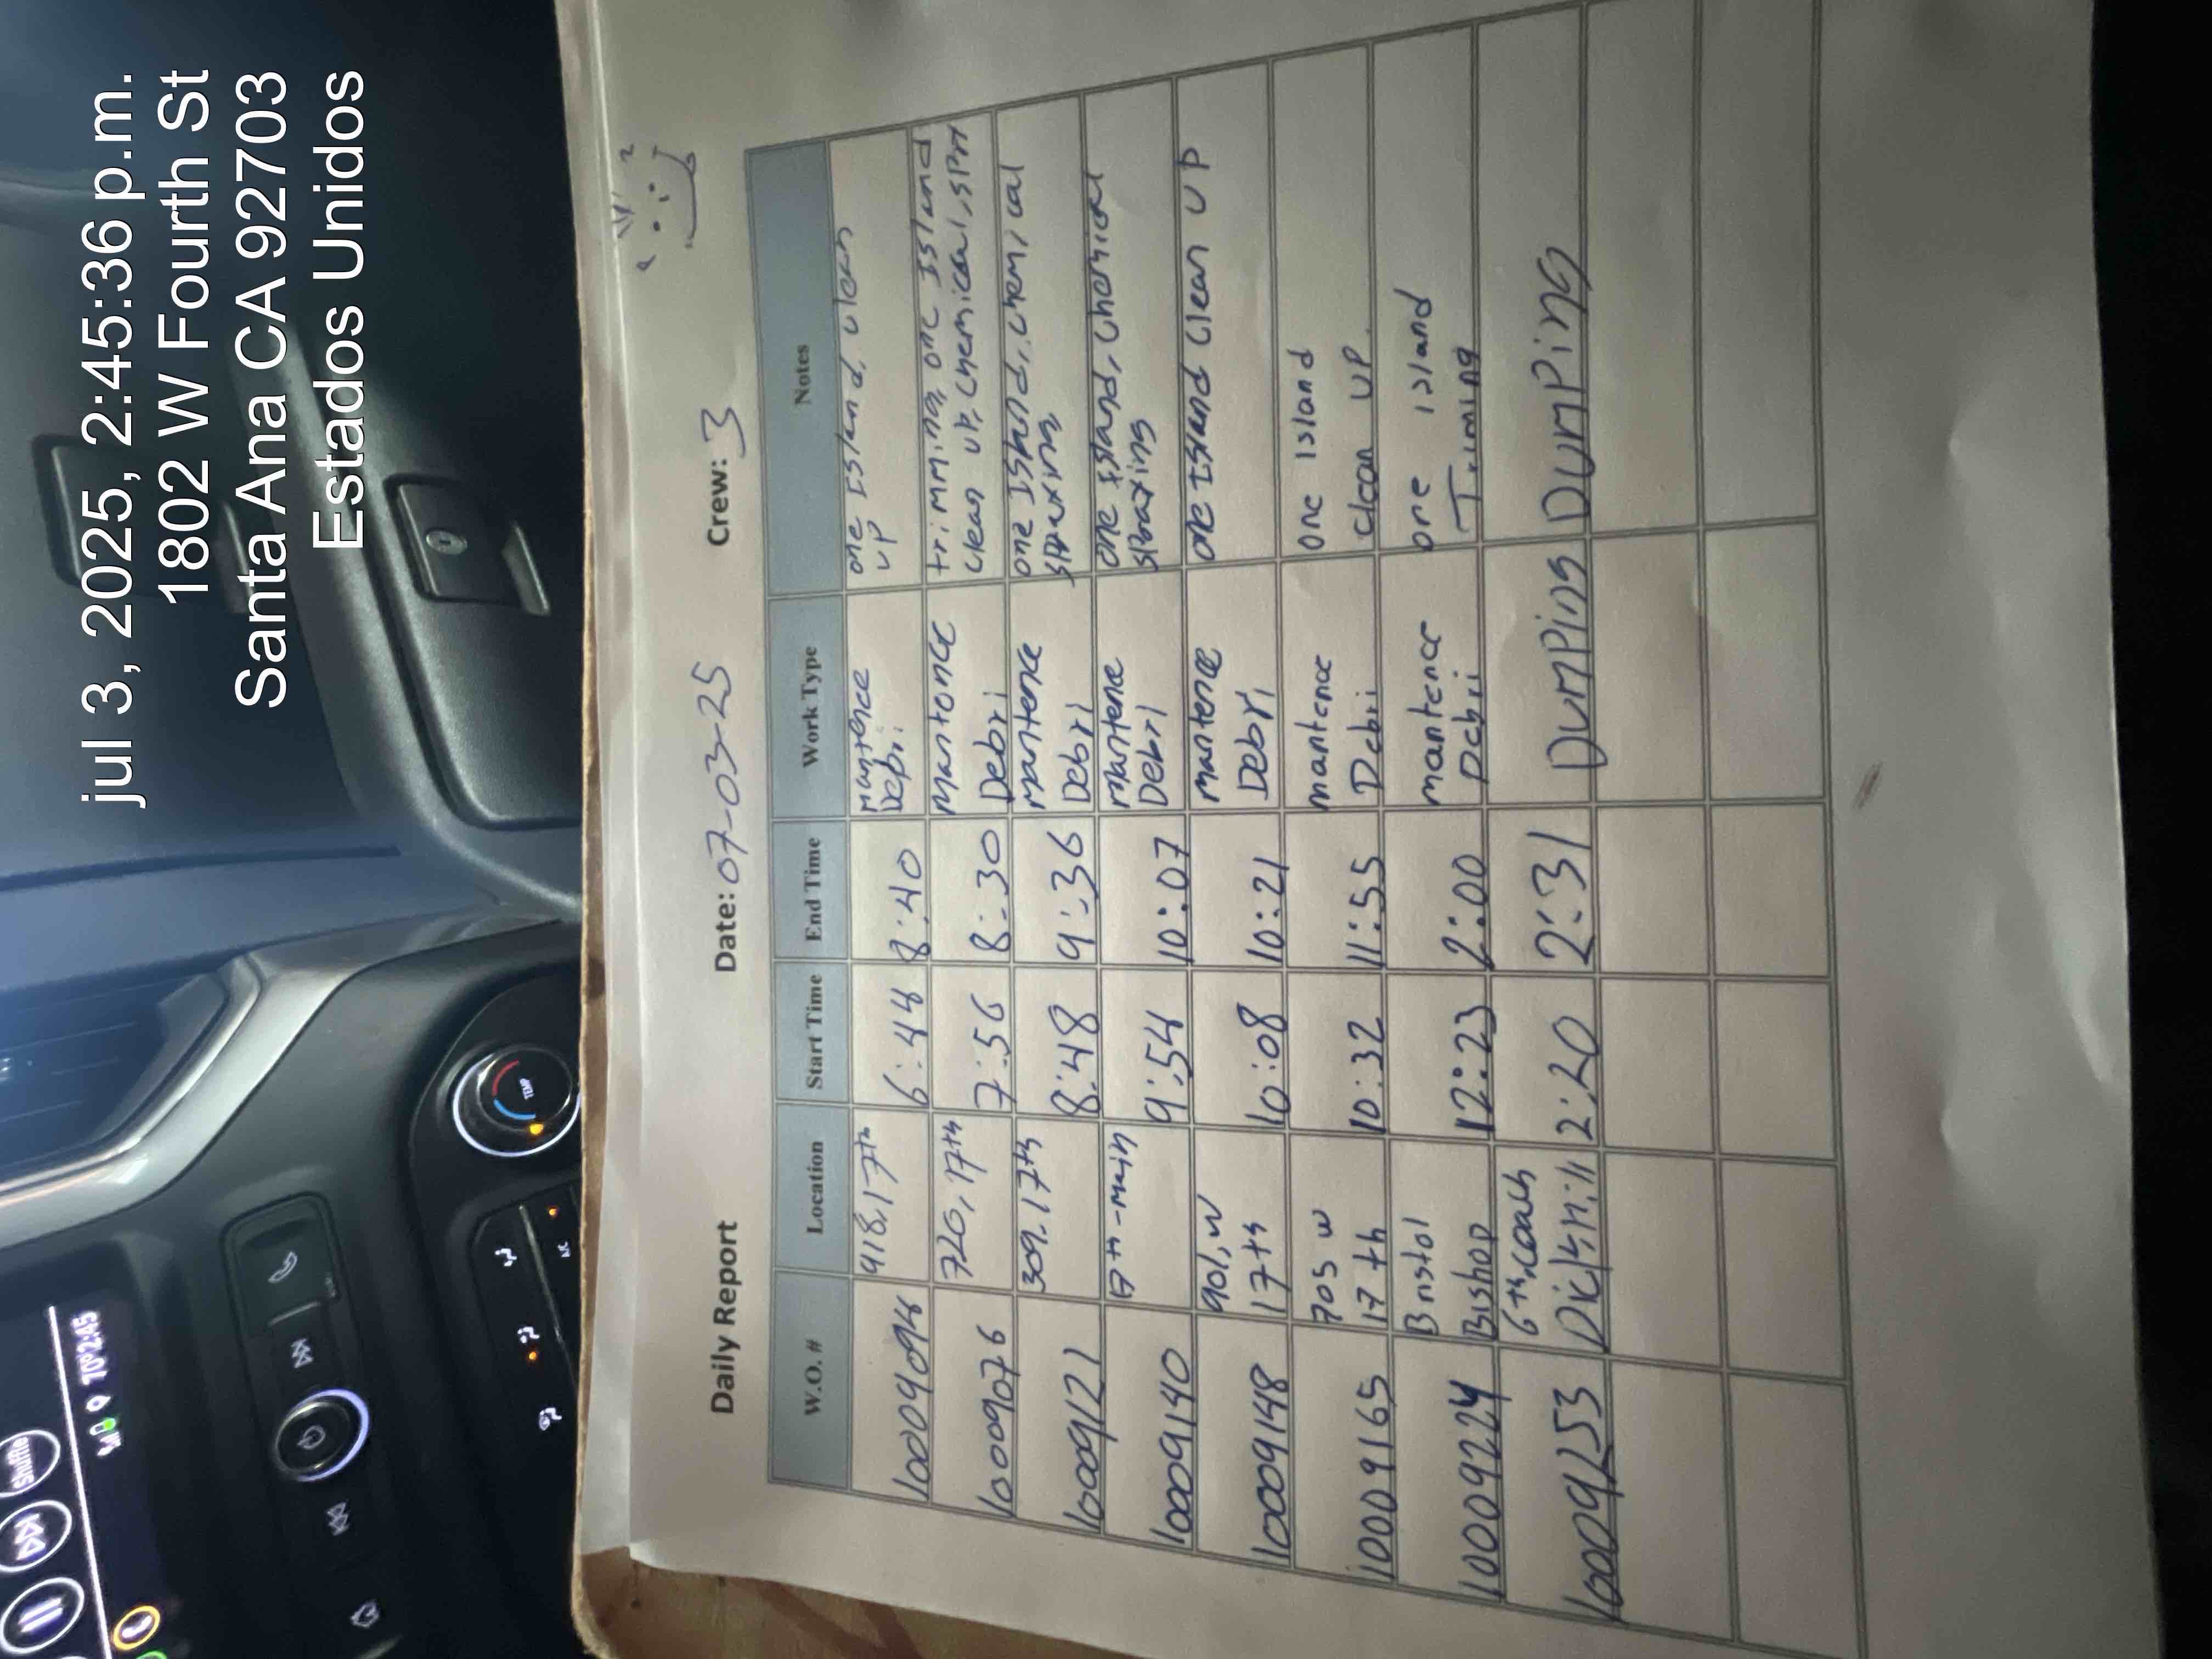 jul 3, 2025, 2:45:36 p.m.
1802 W Fourth St
Santa Ana CA 92703
Estados Unidos
shuffle
70° 2:45
TEMP
A/C
Daily Report Date: 07-03-25 Crew: 3
W.O. # Location Start Time End Time Work Type Notes
10009094 918,17th 6:44 8:40 mantence Debri one Island, clean up
10009076 720,17th 7:56 8:30 mantence Debri trimming one Island clean up, chemical, spry
10009121 309.17th 8:48 9:36 mantence Debri one Island, chemical
10009140 17th-main 9:54 10:07 mantene Debri one Island, chemical
10009148 901,W 17th 10:08 10:21 mantence Debri one Island clean up
10009165 705 W 17th 10:32 11:55 mantence Debri one island clean up.
10009224 Bristol Bishop 12:23 2:00 mantence Debri one island Triming
10009253 6th, 2:20 2:31 DumPing DumPing